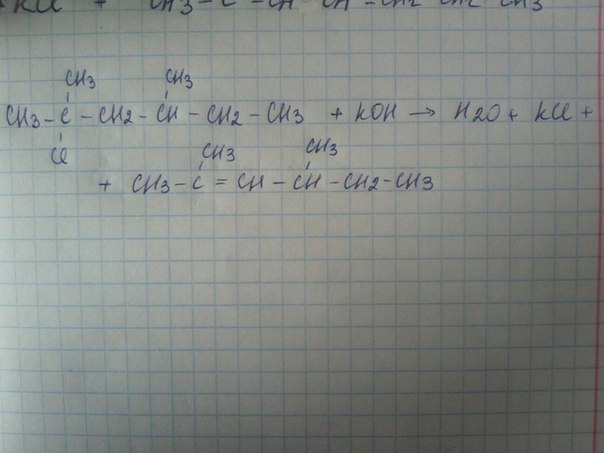 KCl + CH3-C-CH CH-CH2 CH2 CH3
CH3 CH3
CH3-C-CH2-CH-CH2-CH3 + KOH → H2O + KCl +
Cl
CH3 CH3
+ CH3-C=CH-CH-CH2-CH3